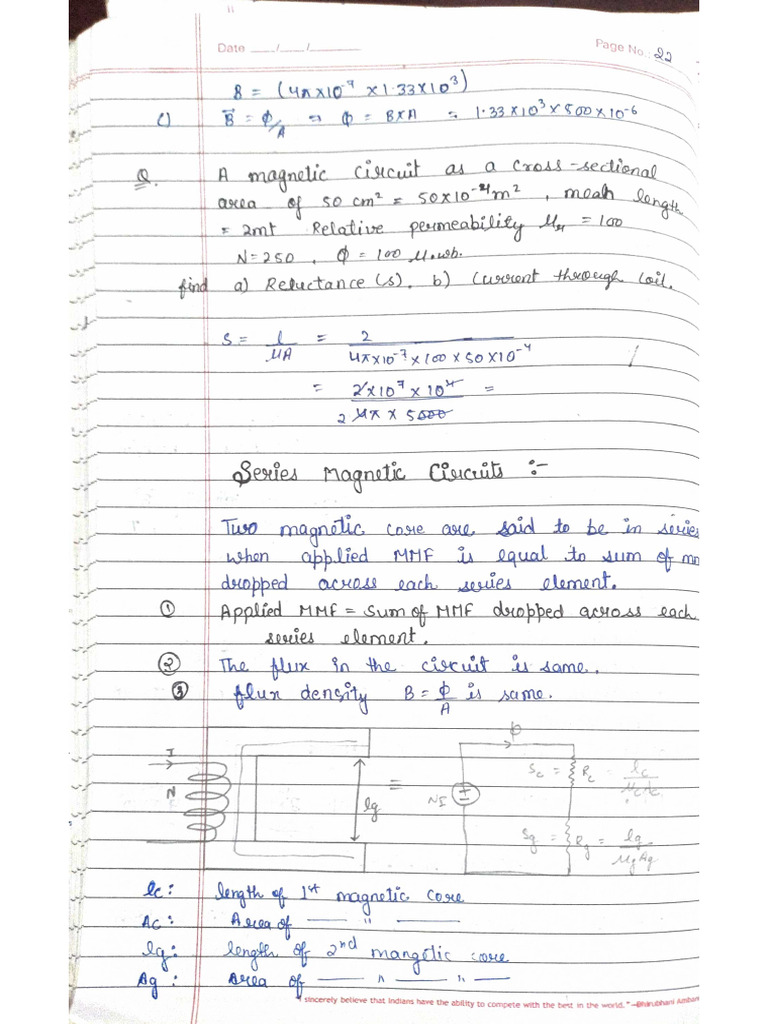 Date ___/___/______ Page No.: 22
B = (4π×10⁻⁷ × 1.33×10³)
c) B⃗ = Φ/A ⇒ Φ = B×A = 1.33×10³×500×10⁻⁶
Q. A magnetic circuit as a cross-sectional
area of 50 cm² = 50×10⁻⁴m², mean length
= 2mt Relative permeability μr = 100
N=250, Φ = 100 μ.wb.
find a) Reluctance (s). b) Current through coil.
S = l/μA = 2/4π×10⁻⁷×100×50×10⁻⁴
= 2×10⁷×10⁴/2 4π × 5000 =
Series Magnetic Circuits :-
Two magnetic core are said to be in series
when applied MMF is equal to sum of
dropped across each series element.
① Applied MMF = Sum of MMF dropped across each
series element.
② The flux in the circuit is same.
③ flux density B = Φ/A is same.
I
N
lg
≡
NI
Φ
Sc = Rc = lc/μcAc
Sg = Rg = lg/μgAg
lc: length of 1st magnetic core
Ac: Area of — " —
lg: length of 2nd mangetic core
Ag: Area of — " — " —
I sincerely believe that Indians have the ability to compete with the best in the world." –Dhirubhani Amban